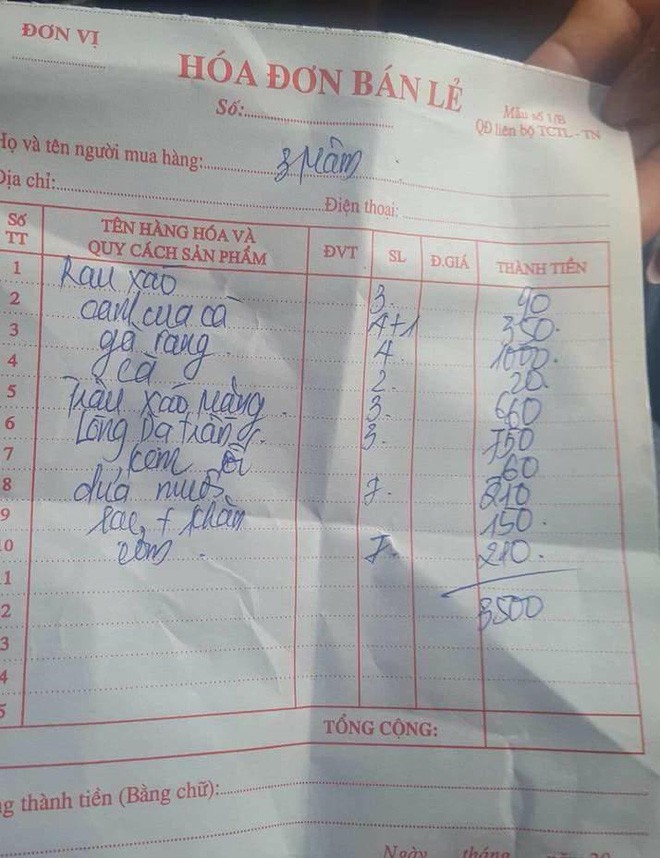 ĐƠN VỊ
HÓA ĐƠN BÁN LẺ
Số:
Mẫu số 1/B
QĐ liên bộ TCTL - TN
Họ và tên người mua hàng: 3 mâm
Địa chỉ:
Điện thoại:
Số TT TÊN HÀNG HÓA VÀ QUY CÁCH SẢN PHẨM ĐVT SL Đ.GIÁ THÀNH TIỀN
1 Rau xào 3. 90
2 canh cua cà 4+1 350.
3 gà rang 4. 1000.
4 cà 2. 20.
5 Trâu xào măng. 3. 660
6 Lòng 3. 750
7 kem 60
8 dứa nước 7. 210
9 + khăn 150.
0 cơm. 7. 210.
1 3500
2
3
4
5
TỔNG CỘNG:
g thành tiền (Bằng chữ):
Ngày tháng